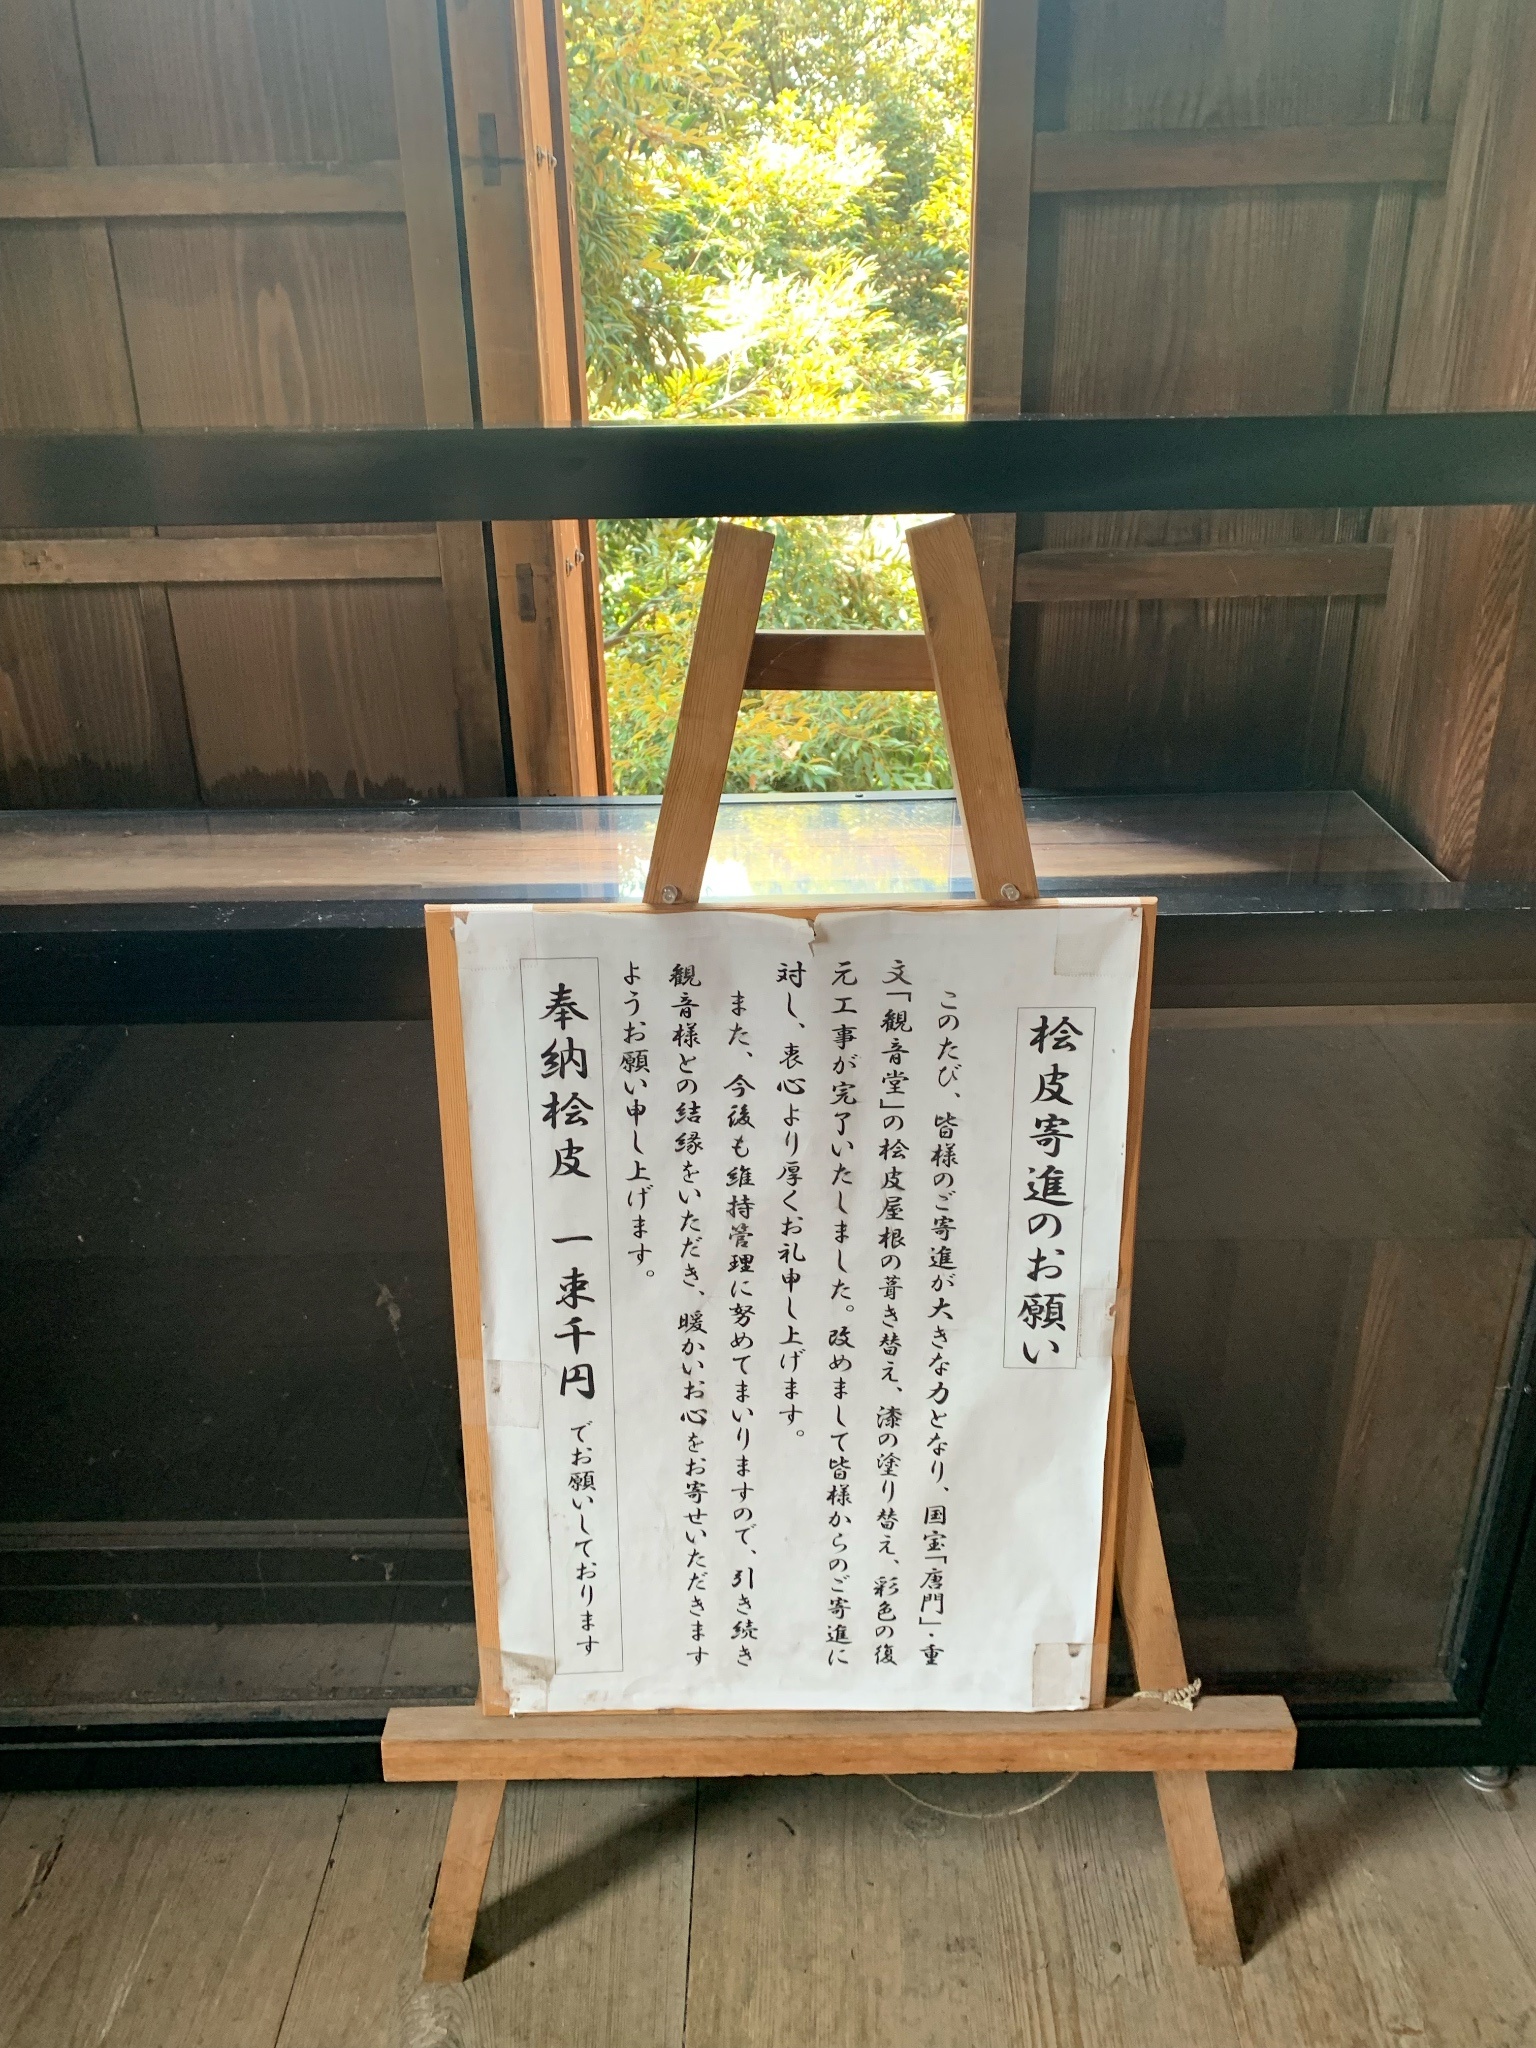 桧皮寄進のお願い
このたび、皆様のご寄進が大きな力となり、国宝「唐門」・重
文「観音堂」の桧皮屋根の葺き替え、漆の塗り替え、彩色の復
元工事が完了いたしました。改めまして皆様からのご寄進に
対し、衷心より厚くお礼申し上げます。
また、今後も維持管理に努めてまいりますので、引き続き
観音様との結縁をいただき、暖かいお心をお寄せいただきます
ようお願い申し上げます。
奉納桧皮 一束千円 でお願いしております